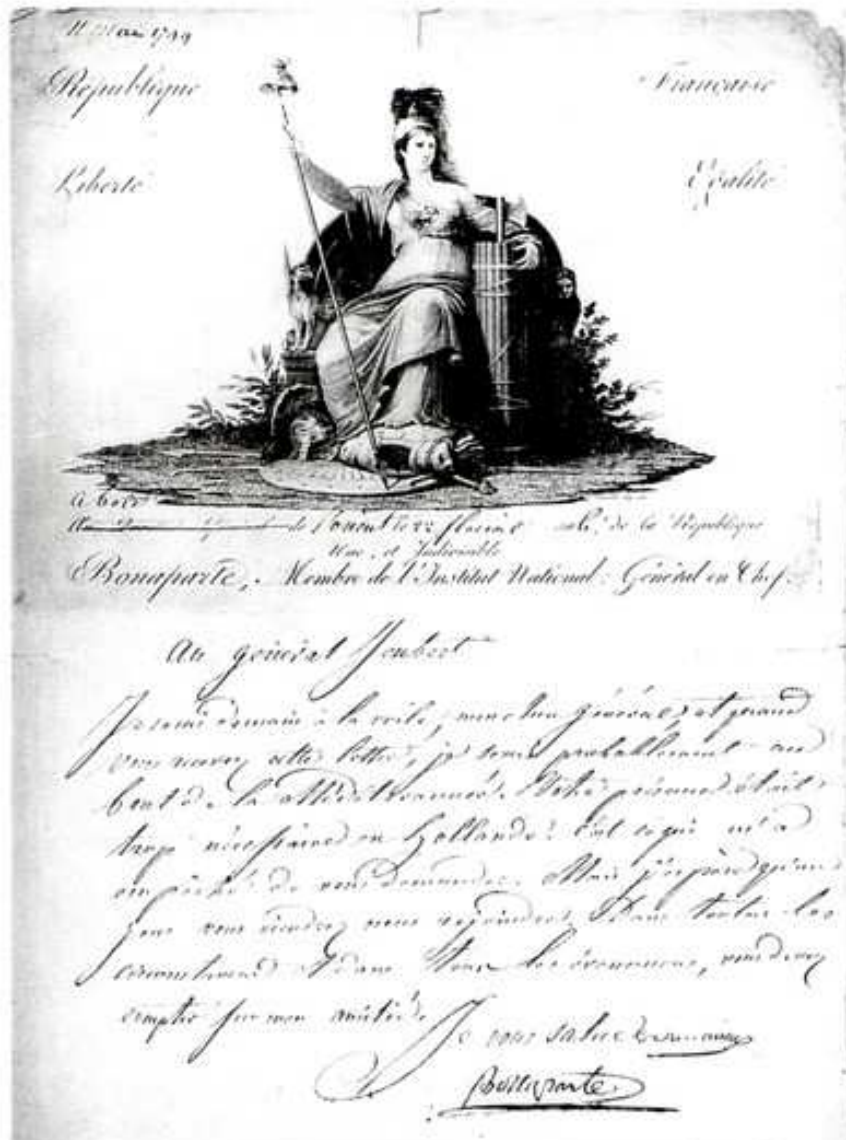 11 Mai 1799
République Française
Liberté Egalité
A bord
de l'orient le 22 floréal de la République
Une et Indivisible
Bonaparte, Membre de l'Institut National, Général en Chef.
Au général Joubert
Je serai demain à la voile, mon cher général, et quand
vous recevrez cette lettre, je serai probablement au
bout de la Méditerranée. Votre présence était
trop nécessaire en Hollande: c'est ce qui m'a
empêché de vous demander. Mais j'espère qu'un
jour vous viendrez nous rejoindre. Dans toutes les
circonstances et dans tous les évènemens, vous devez
compter sur mon amitié.
Je vous salue
Bonaparte